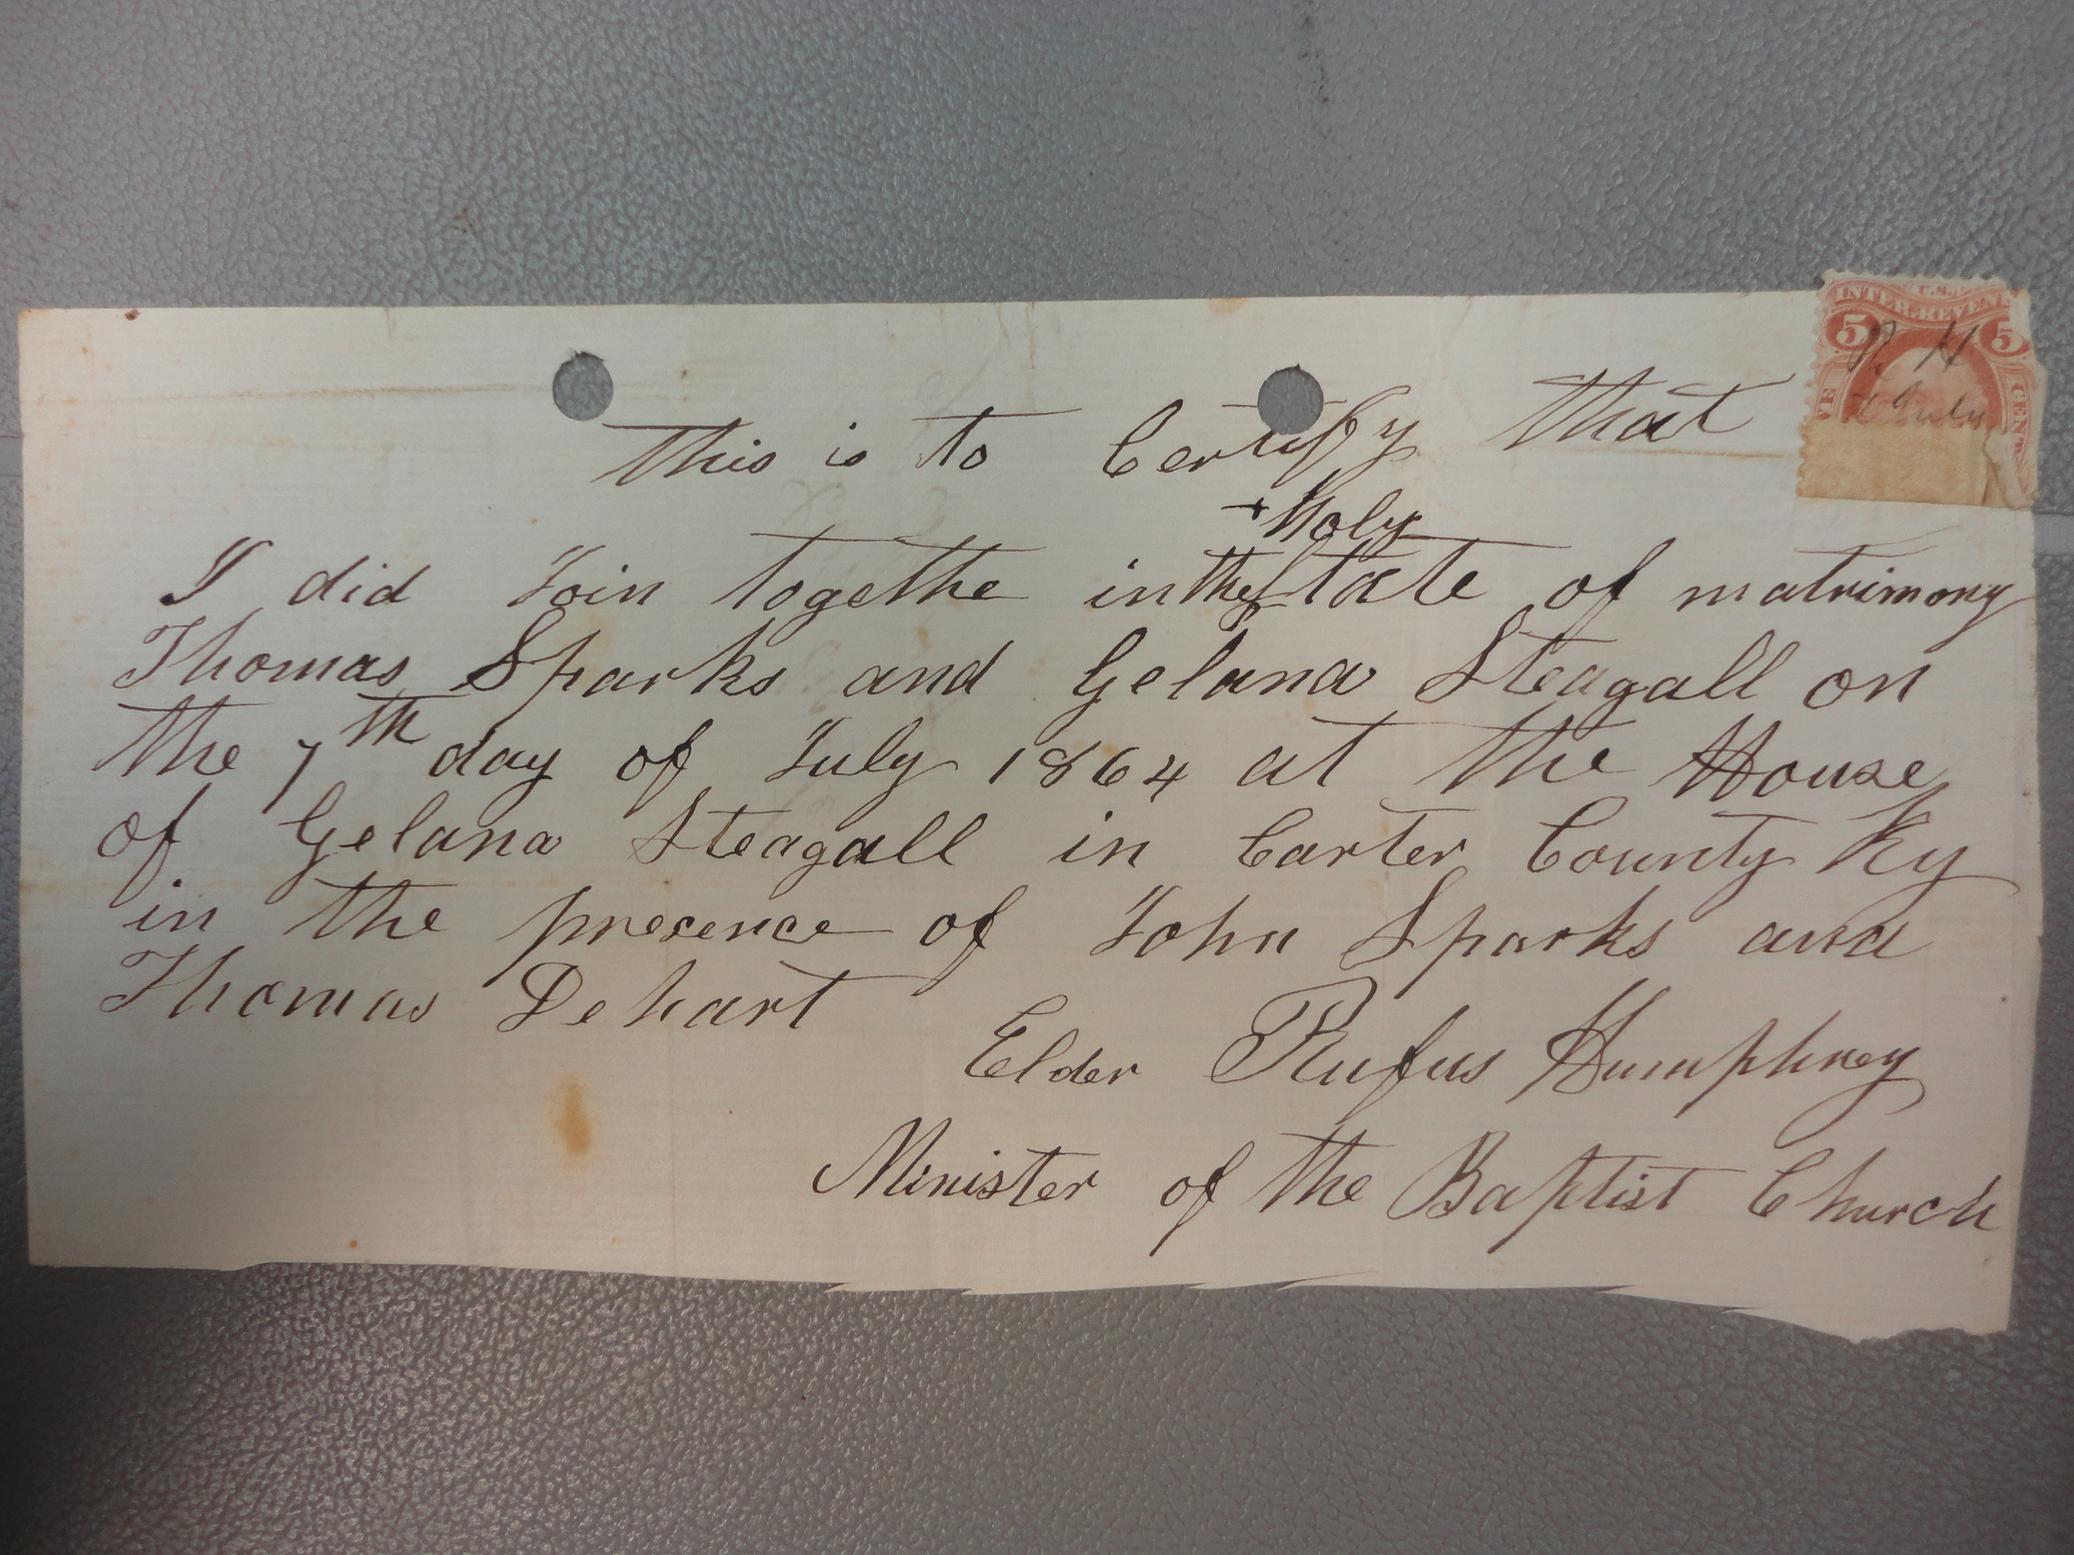 U.S.
INTER. REVENUE
5 5
R H
July
CENTS
This is to Certify that
+ Holy
I did Join togethe in the State of matrimony
Thomas Sparks and Gelana Steagall on
the 7th day of July 1864 at the House
of Gelana Steagall in Carter County Ky
in the presence of John Sparks and
Thomas Dehart
Elder Rufus Humphrey
Minister of the Baptist Church